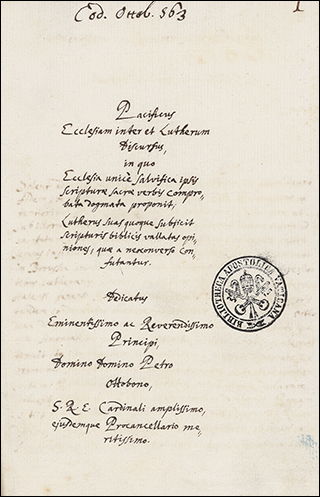 Cod. Ottob. 563
1
Pacificus
Ecclesiam inter et Lutherum
Discursus,
in quo
Ecclesia unicè salvifica ipsis
scripturæ sacræ verbis compro-
bata dogmata proponit,
Lutherus suas quoque subijcit
scripturis biblicis vallatas opi-
niones, quæ a neoconverso con-
futantur.
Dedicatus
Eminentissimo ac Reverendissimo
Principi,
Domino Domino Petro
Ottobono,
S. R. E. Cardinali amplissimo,
ejusdemque Procancellario me-
ritissimo.
BIBLIOTHECA APOSTOLICA VATICANA